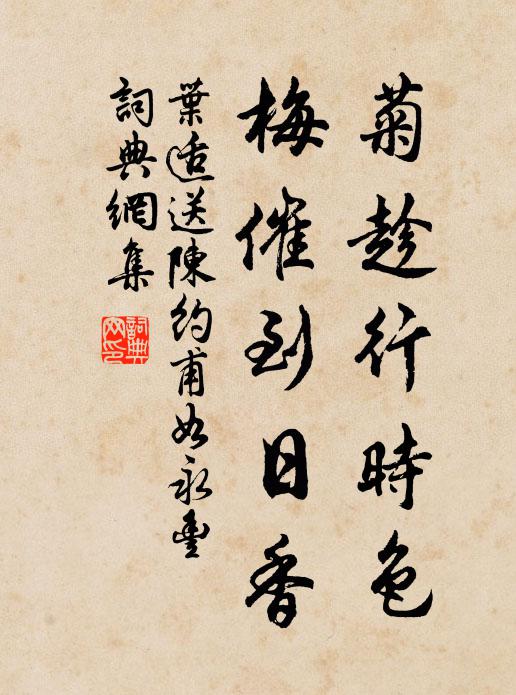 菊趁行時色
梅催到日香
葉适送陳約甫如永豐
詞典網集
詞典網印